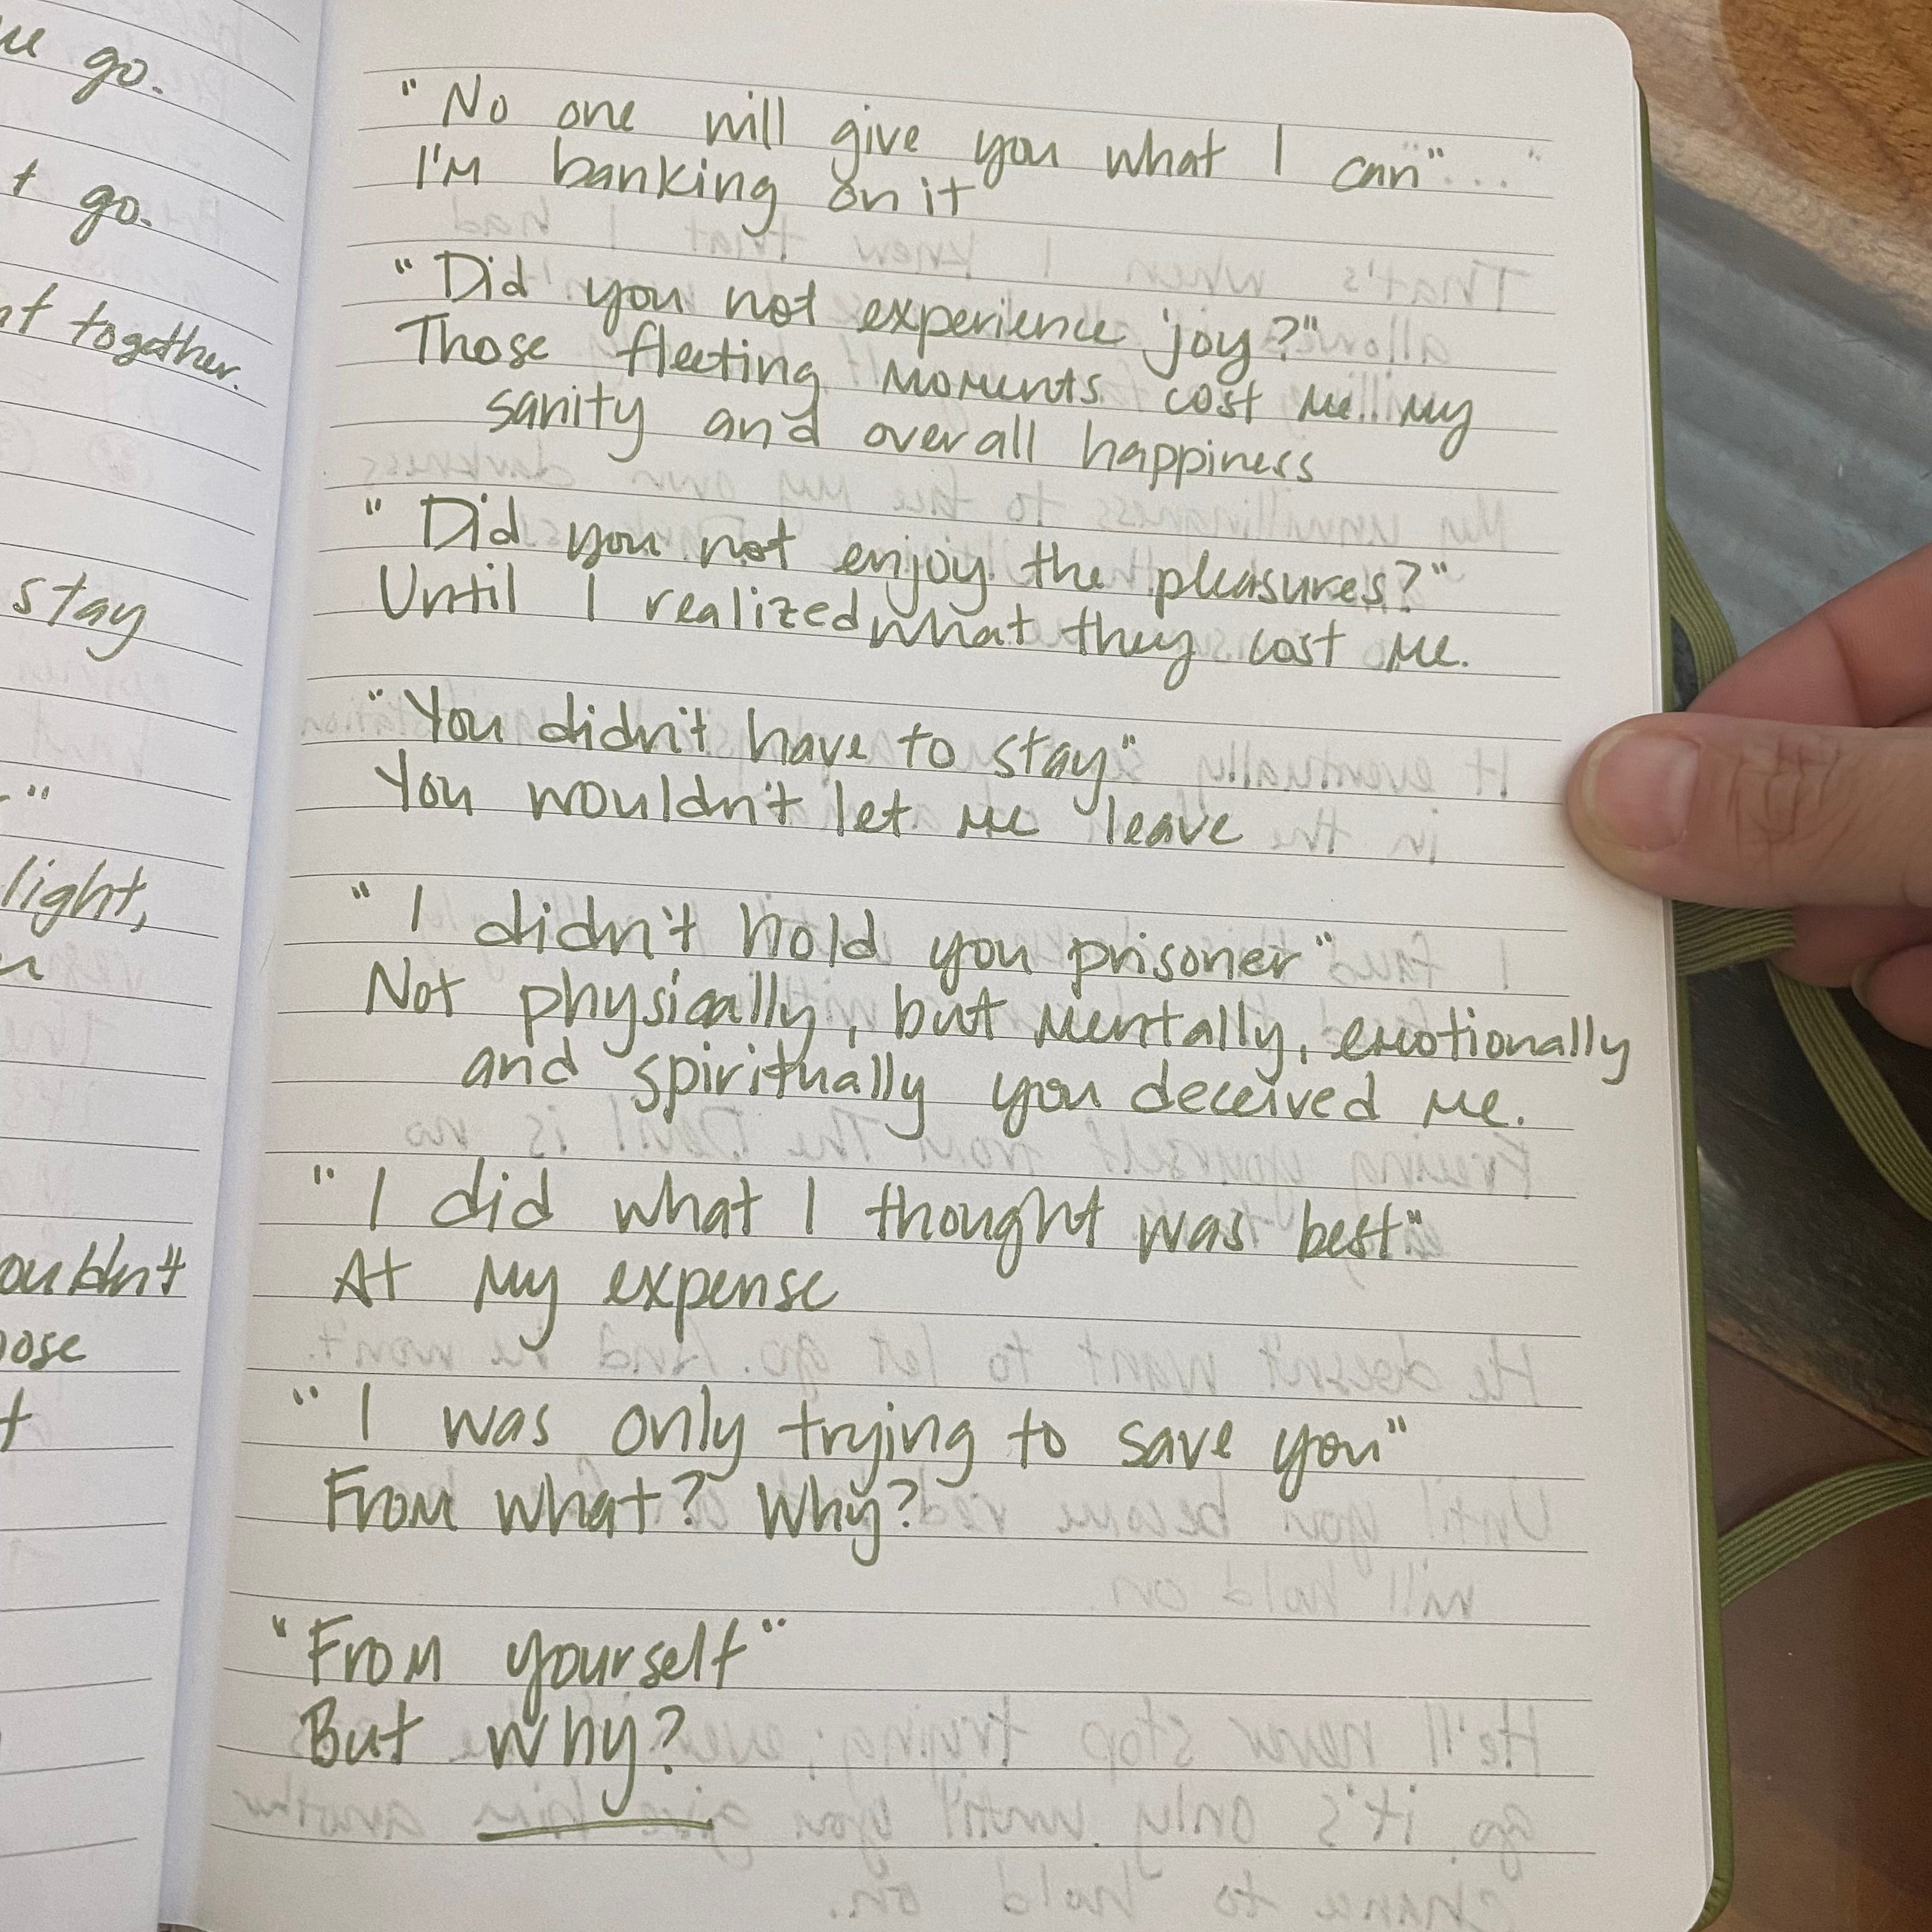 go.
go.
together.
stay
light,
"No one will give you what I can"...
I'm banking on it
"Did you not experience joy?"
Those fleeting moments cost me my
sanity and overall happiness
"Did you not enjoy the pleasures?"
Until I realized what they cost me.
"You didn't have to stay"
You wouldn't let me leave
"I didn't hold you prisoner"
Not physically, but mentally, emotionally
and spiritually you deceived me.
"I did what I thought was best"
At my expense
"I was only trying to save you"
From what? Why?
"From yourself"
But why?